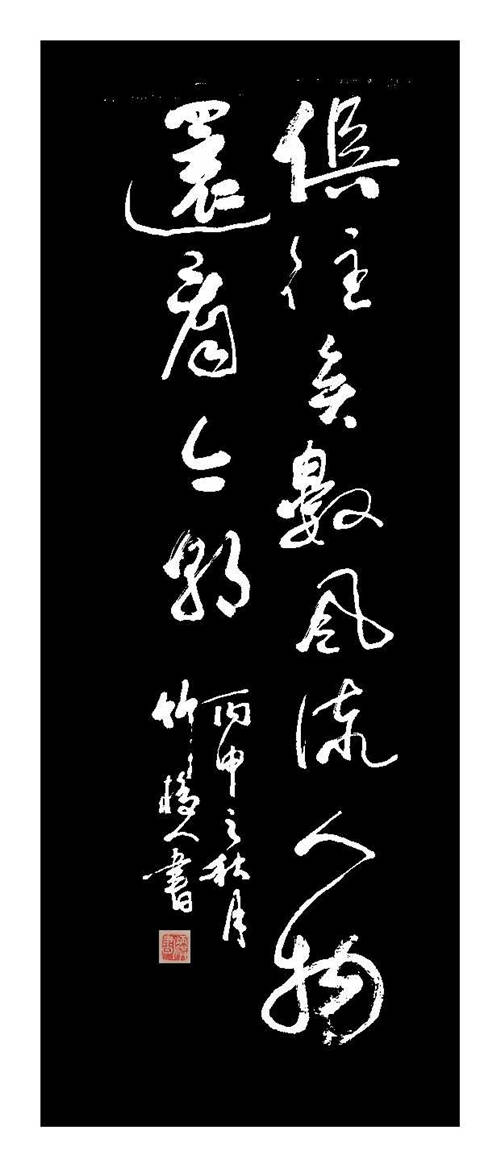 俱往矣數風流人物
還看今朝
丙申之秋月
竹人書